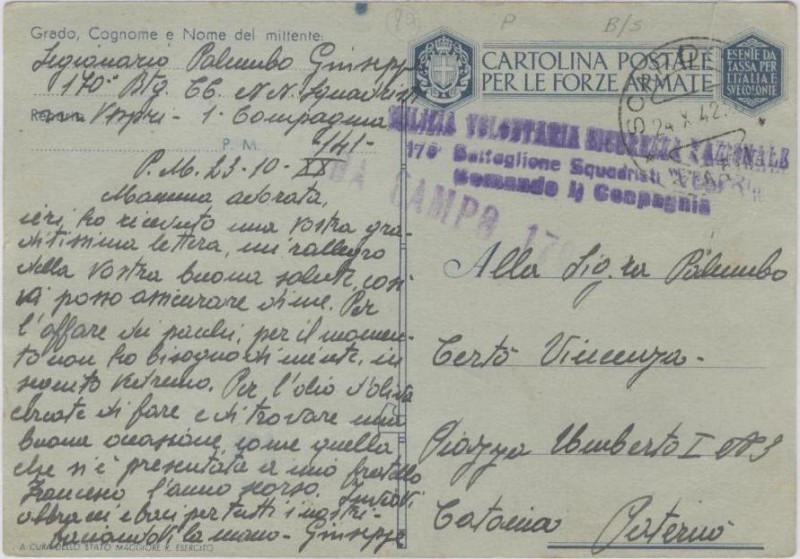 P B/S
Grado, Cognome e Nome del mittente:
Legionario Palumbo Giuseppe
170° Btg. CC. N.N. Squadristi
Reparto Vespri - 1ª Compagnia
P. M. -141-
P. M. 23-10-XX
Mamma adorata,
ieri, ho ricevuto una vostra gra-
ditissima lettera, mi rallegro
della vostra buona salute, così
vi posso assicurare di me. Per
l'affare dei pacchi, per il momen-
to non ho bisogno di niente, in
seguito vedremo. Per l'olio d'oliva
cercate di fare e di trovare una
buona occasione, come quella
che si è presentata a mio fratello
Francesco l'anno scorso.
abbracci e baci per tutti i nostri
baciandovi la mano - Giuseppe
A CURA DELLO STATO MAGGIORE R. ESERCITO
CARTOLINA POSTALE
PER LE FORZE ARMATE
ESENTE DA
TASSA PER
L'ITALIA E
SVE COLONIE
24 X 42
MILIZIA VOLONTARIA SICUREZZA NAZIONALE
170 Battaglione Squadristi "VESPRI"
Comando 1ª Compagnia
DA CAMPO 170
Alla Sig.ra Palumbo
Certo Vincenza -
Piazza Umberto I N 3
Catania Paternò